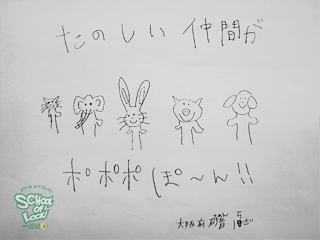 たのしい 仲間が
ポポポぽ〜ん!!
SCHOOL
OF
LOCK!